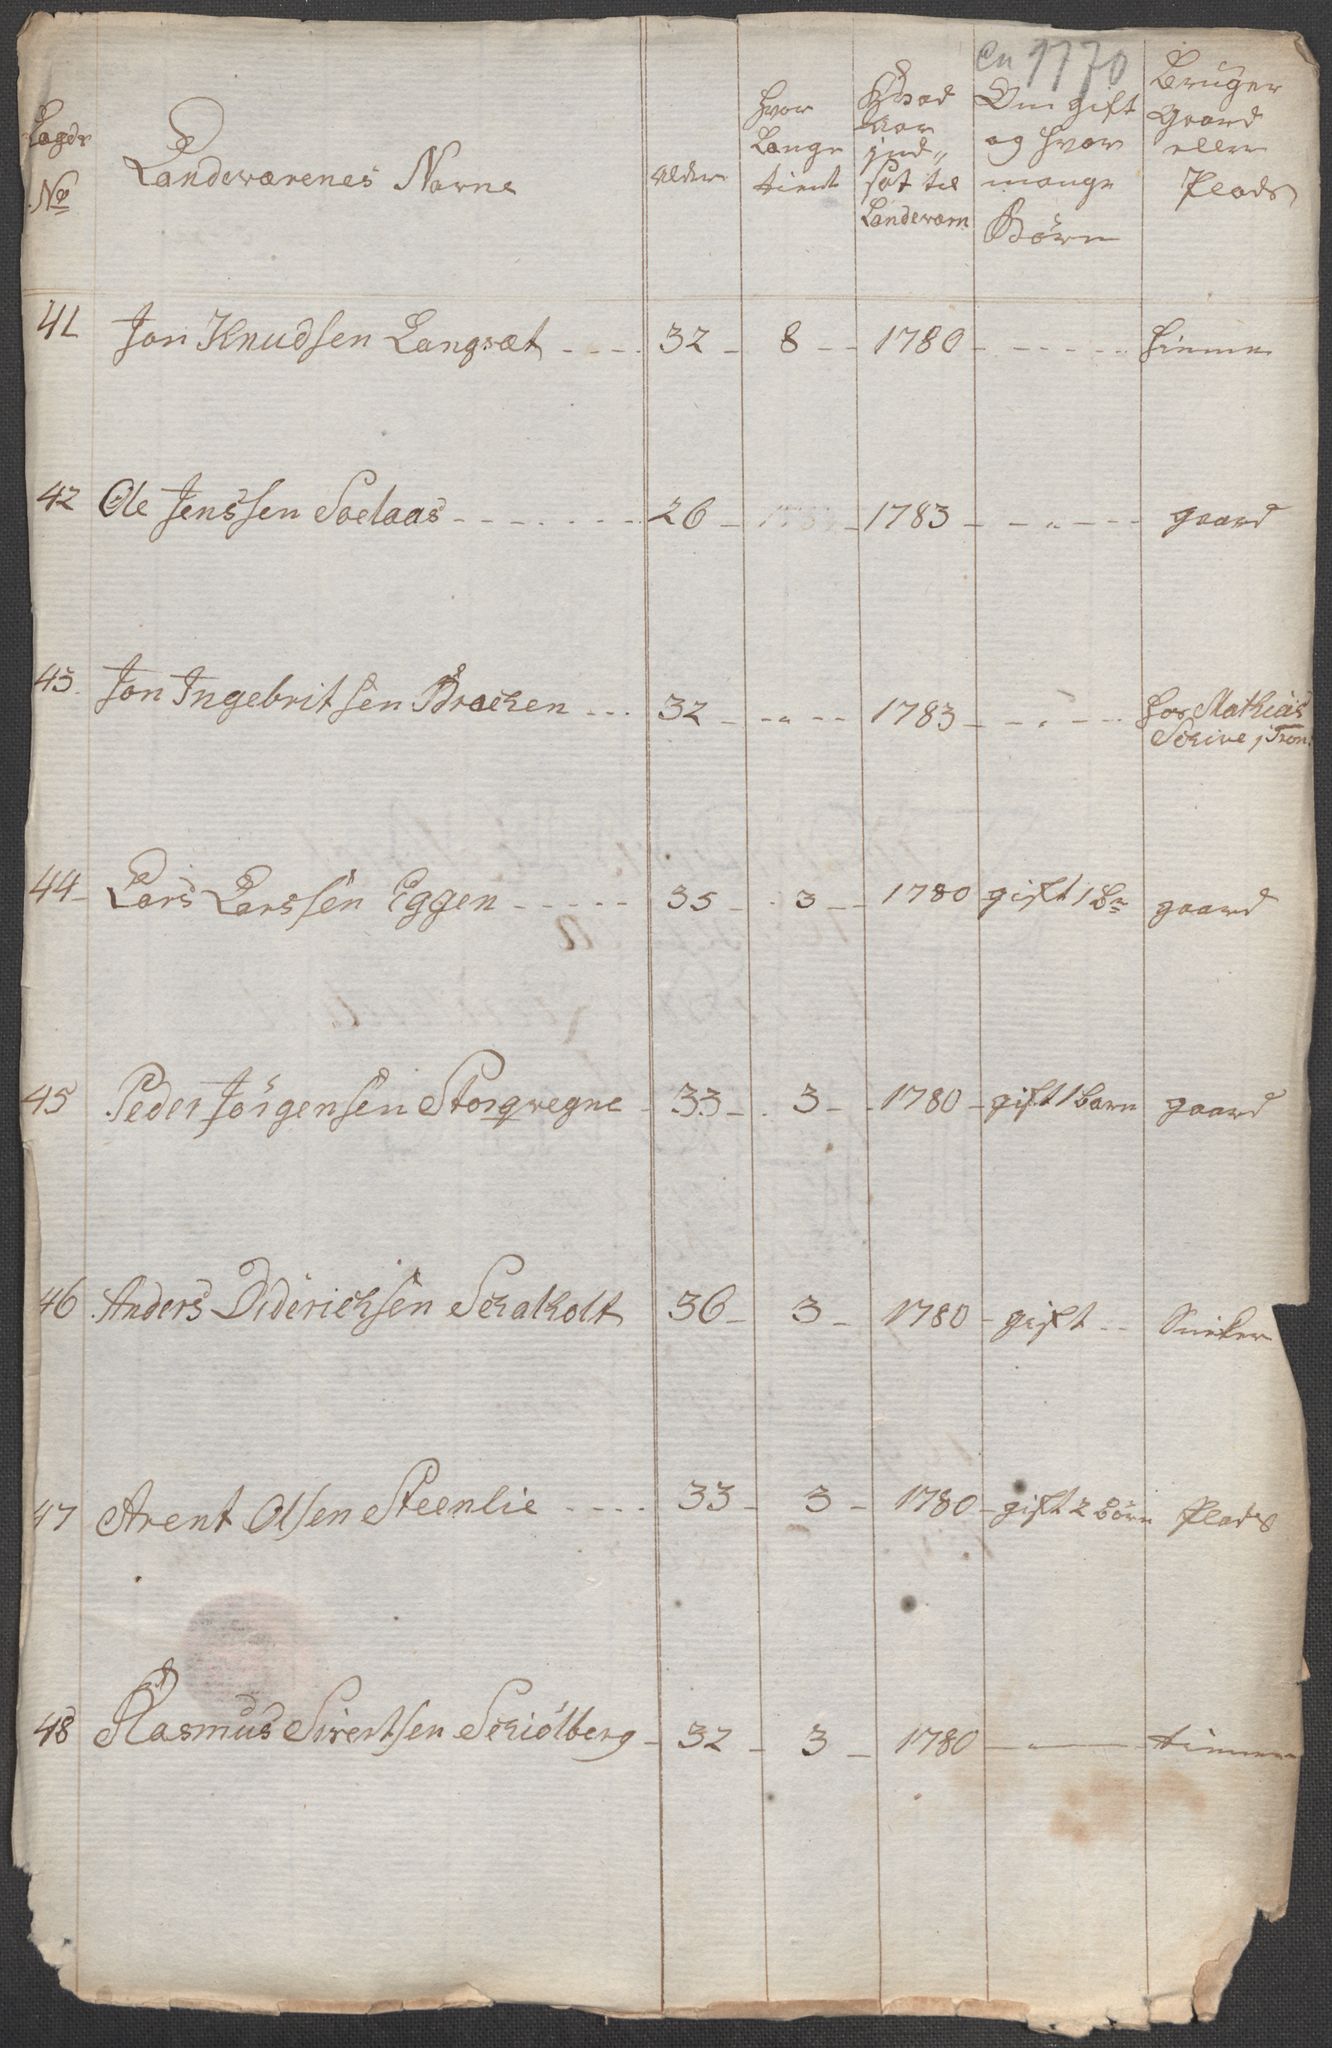 ca 1770
Lagds No | Landeværenes Navne | Alder | hvor Længe tient | Hvad Aar ind„ sat til Landeværn | Om gift og hvor mange Börn | Bruger Gaard eller Plads
41 Jon Knudsen Langsæt - - - - 32 - 8 - - 1780 - - - - - hiemme
42 Ole Jenssen Solaas - - - - - - - 26 - - 1783 - - „ - - - gaard
43. Jon Ingebritsen Brechen - - - 32 - - „ - - 1783 - - „ - - - hos Mathias
Schive i Tron:
44 Lars Larssen Eggen - - - - - 35 - 3 - - 1780 gift 1 Bn gaard
45 Peder Jörgensen Storqvegne - 33 - 3 - - 1780 - gift 1 barn gaard
46 Anders Diderichsen Schalholt 36 - 3 - 1780 - gift - - Snicker
47 Arent Olsen Steenlie - - - - 33 - 3 - 1780 - gift 2 börn Plads
48 Rasmus Sivertsen Schiölberg - 32 - 3 - 1780 - „ - tienner